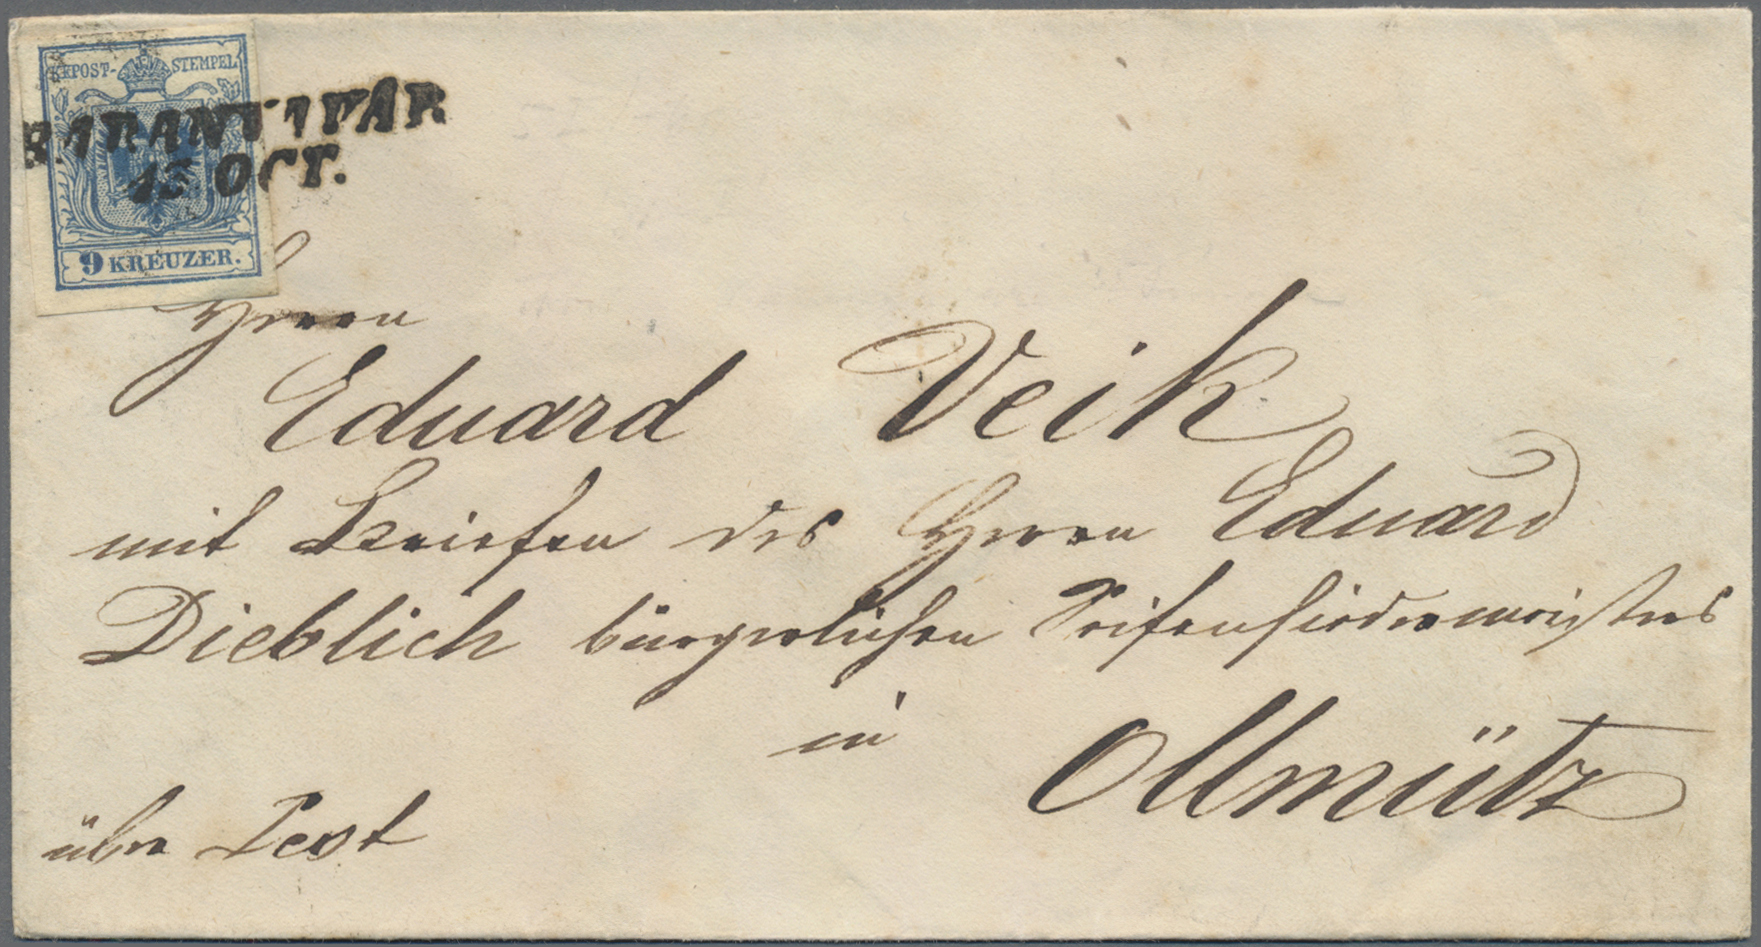 KKPOST-STEMPEL
BARANYAVÁR
13. OCT.
9 KREUZER.
Herrn
Eduard Veik
mit Briefen des Herrn Eduard
Dieblich bürgerlichen Seifensiedermeisters
in Ollmütz
über Pest